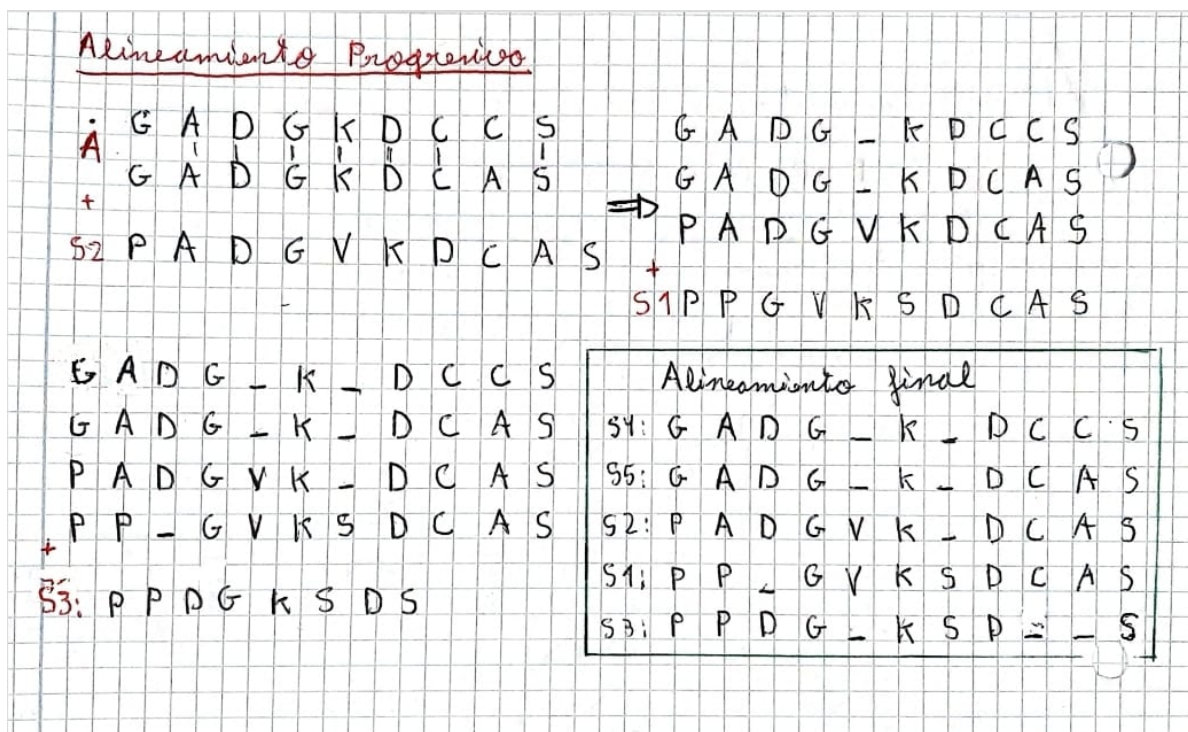 Alineamiento Progresivo
A G A D G K D C C S
G A D G K D C A S
+
S2 P A D G V K D C A S
⇒
G A D G _ K D C C S
G A D G _ K D C A S
P A D G V K D C A S
+
S1 P P G V K S D C A S
G A D G _ K _ D C C S
G A D G _ K _ D C A S
P A D G V K _ D C A S
P P _ G V K S D C A S
+
S3: P P D G K S D S
Alineamiento final
S4: G A D G _ K _ D C C S
S5: G A D G _ K _ D C A S
S2: P A D G V K _ D C A S
S1: P P _ G V K S D C A S
S3: P P D G _ K S D _ _ S